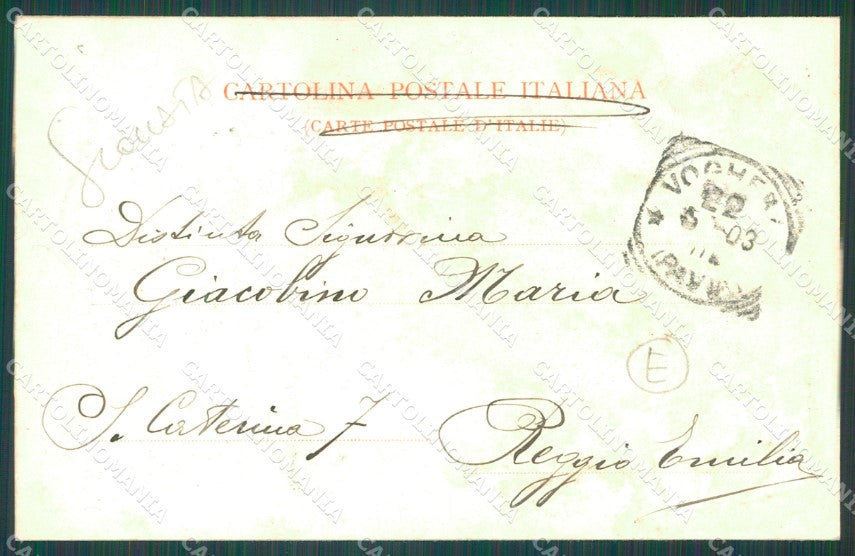 CARTOLINA POSTALE ITALIANA
(CARTE POSTALE D'ITALIE)
VOGHERA
22
03
(PAVIA)
Distinta Signorina
Giacobino Maria
E
S. Caterina 7
Reggio Emilia
CARTOLINOMANIA